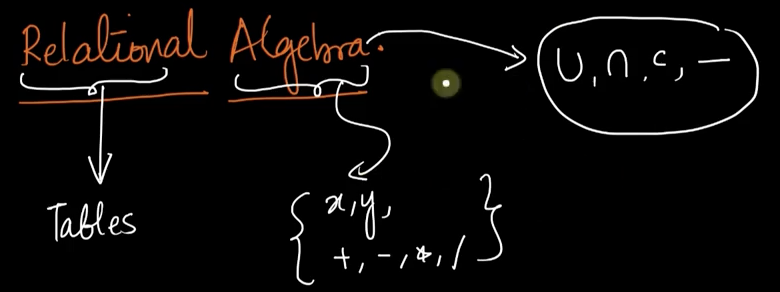 Relational Algebra.
∪, ∩, c, —
Tables
{ x, y,
+, -, *, / }